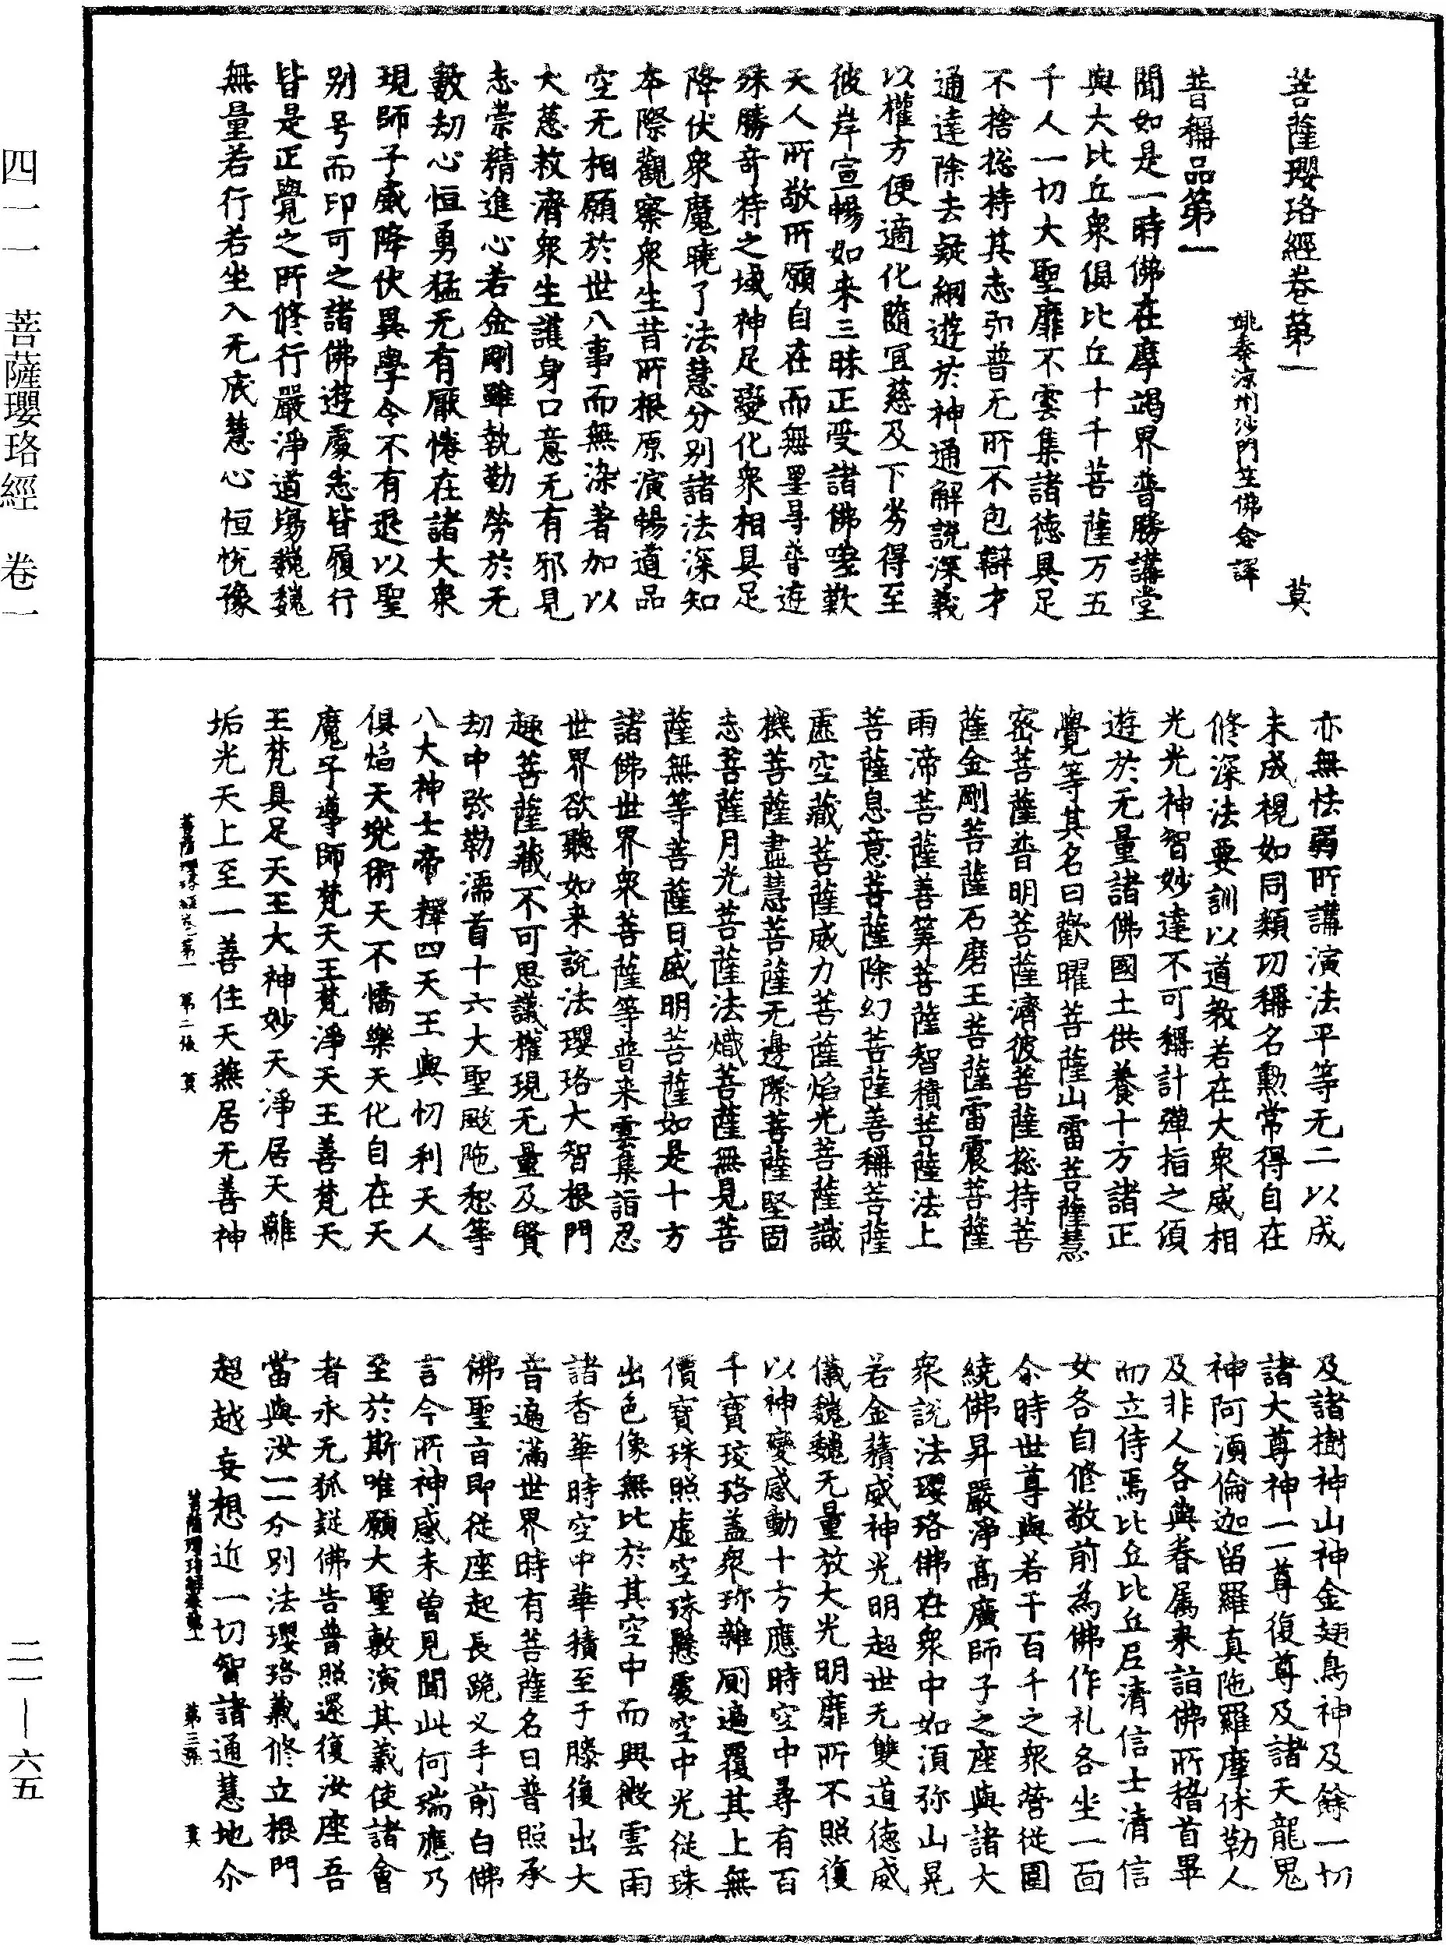 菩薩瓔珞經卷第一　　莫
姚秦涼州沙門竺佛念譯
普稱品第一
聞如是一時佛在摩竭界普勝講堂
與大比丘衆俱比丘十千菩薩万五
千人一切大聖靡不雲集諸德具足
不捨揔持其志弘普无所不包辯才
通達除去疑網遊於神通解說深義
以權方便適化隨宜慈及下劣得至
彼岸宣暢如來三昧正受諸佛嗟歎
天人所敬所願自在而無罣㝵普遊
殊勝奇特之域神足變化衆相具足
降伏衆魔曉了法慧分別諸法深知
本際觀察衆生昔所根原演暢道品
空无相願於世八事而無染著加以
大慈救濟衆生護身口意无有邪見
志崇精進心若金剛雖執勤勞於无
數劫心恒勇猛无有厭惓在諸大衆
現師子威降伏異學令不有退以聖
別号而印可之諸佛遊處悉皆履行
皆是正覺之所修行嚴淨道場巍巍
無量若行若坐入无底慧心恒悅豫
亦無怯弱所講演法平等无二以成
未成視如同類功稱名勲常得自在
修深法要訓以道教若在大衆威相
光光神智妙達不可稱計彈指之須
遊於无量諸佛國土供養十方諸正
覺等其名曰歡曜菩薩山雷菩薩慧
密菩薩普明菩薩濟彼菩薩揔持菩
薩金剛菩薩石磨王菩薩雷震菩薩
雨渧菩薩善筭菩薩智積菩薩法上
菩薩息意菩薩除幻菩薩善稱菩薩
虛空藏菩薩威力菩薩焰光菩薩識
機菩薩盡慧菩薩无邊際菩薩堅固
志菩薩月光菩薩法熾菩薩無見菩
薩無等菩薩日盛明菩薩如是十方
諸佛世界衆菩薩等普来雲集詣忍
世界欲聽如来說法瓔珞大智根門
趣菩薩藏不可思議權現无量及賢
劫中弥勒濡首十六大聖颰陁惒等
八大神士帝釋四天王與忉利天人
俱焰天兠術天不憍樂天化自在天
魔子導師梵天王梵淨天王善梵天
王梵具足天王大神妙天淨居天離
垢光天上至一善住天無居无善神
菩薩瓔珞經卷第一　第二張　莫
及諸樹神山神金翅鳥神及餘一切
諸大尊神一一尊復尊及諸天龍鬼
神阿湏倫迦留羅真陁羅摩休勒人
及非人各與眷属来詣佛所稽首畢
而立侍焉比丘比丘尼清信士清信
女各自修敬前為佛作礼各坐一面
尒時世尊與若干百千之衆營從圍
繞佛昇嚴淨高廣師子之座與諸大
衆說法瓔珞佛在衆中如湏弥山晃
若金䕃威神光明超世无雙道德威
儀巍巍无量放大光明靡所不照復
以神變感動十方應時空中尋有百
千寶珓珞蓋衆珎雜厠遍覆其上無
價寶珠照虛空珠懸處空中光從珠
出色像無比於其空中而興微雲雨
諸香華時空中華積至于膝復出大
音遍滿世界時有菩薩名曰普照承
佛聖旨即從座起長跪叉手前白佛
言今所神感未曾見聞此何瑞應乃
至於斯唯願大聖敷演其義使諸會
者永无狐疑佛告普照還復汝座吾
當與汝一一分別法瓔珞義修立根門
超越妄想近一切智諸通慧地尒
菩薩瓔珞經卷第一　第三張　莫
四一一　菩薩瓔珞經　卷一
二一—六五